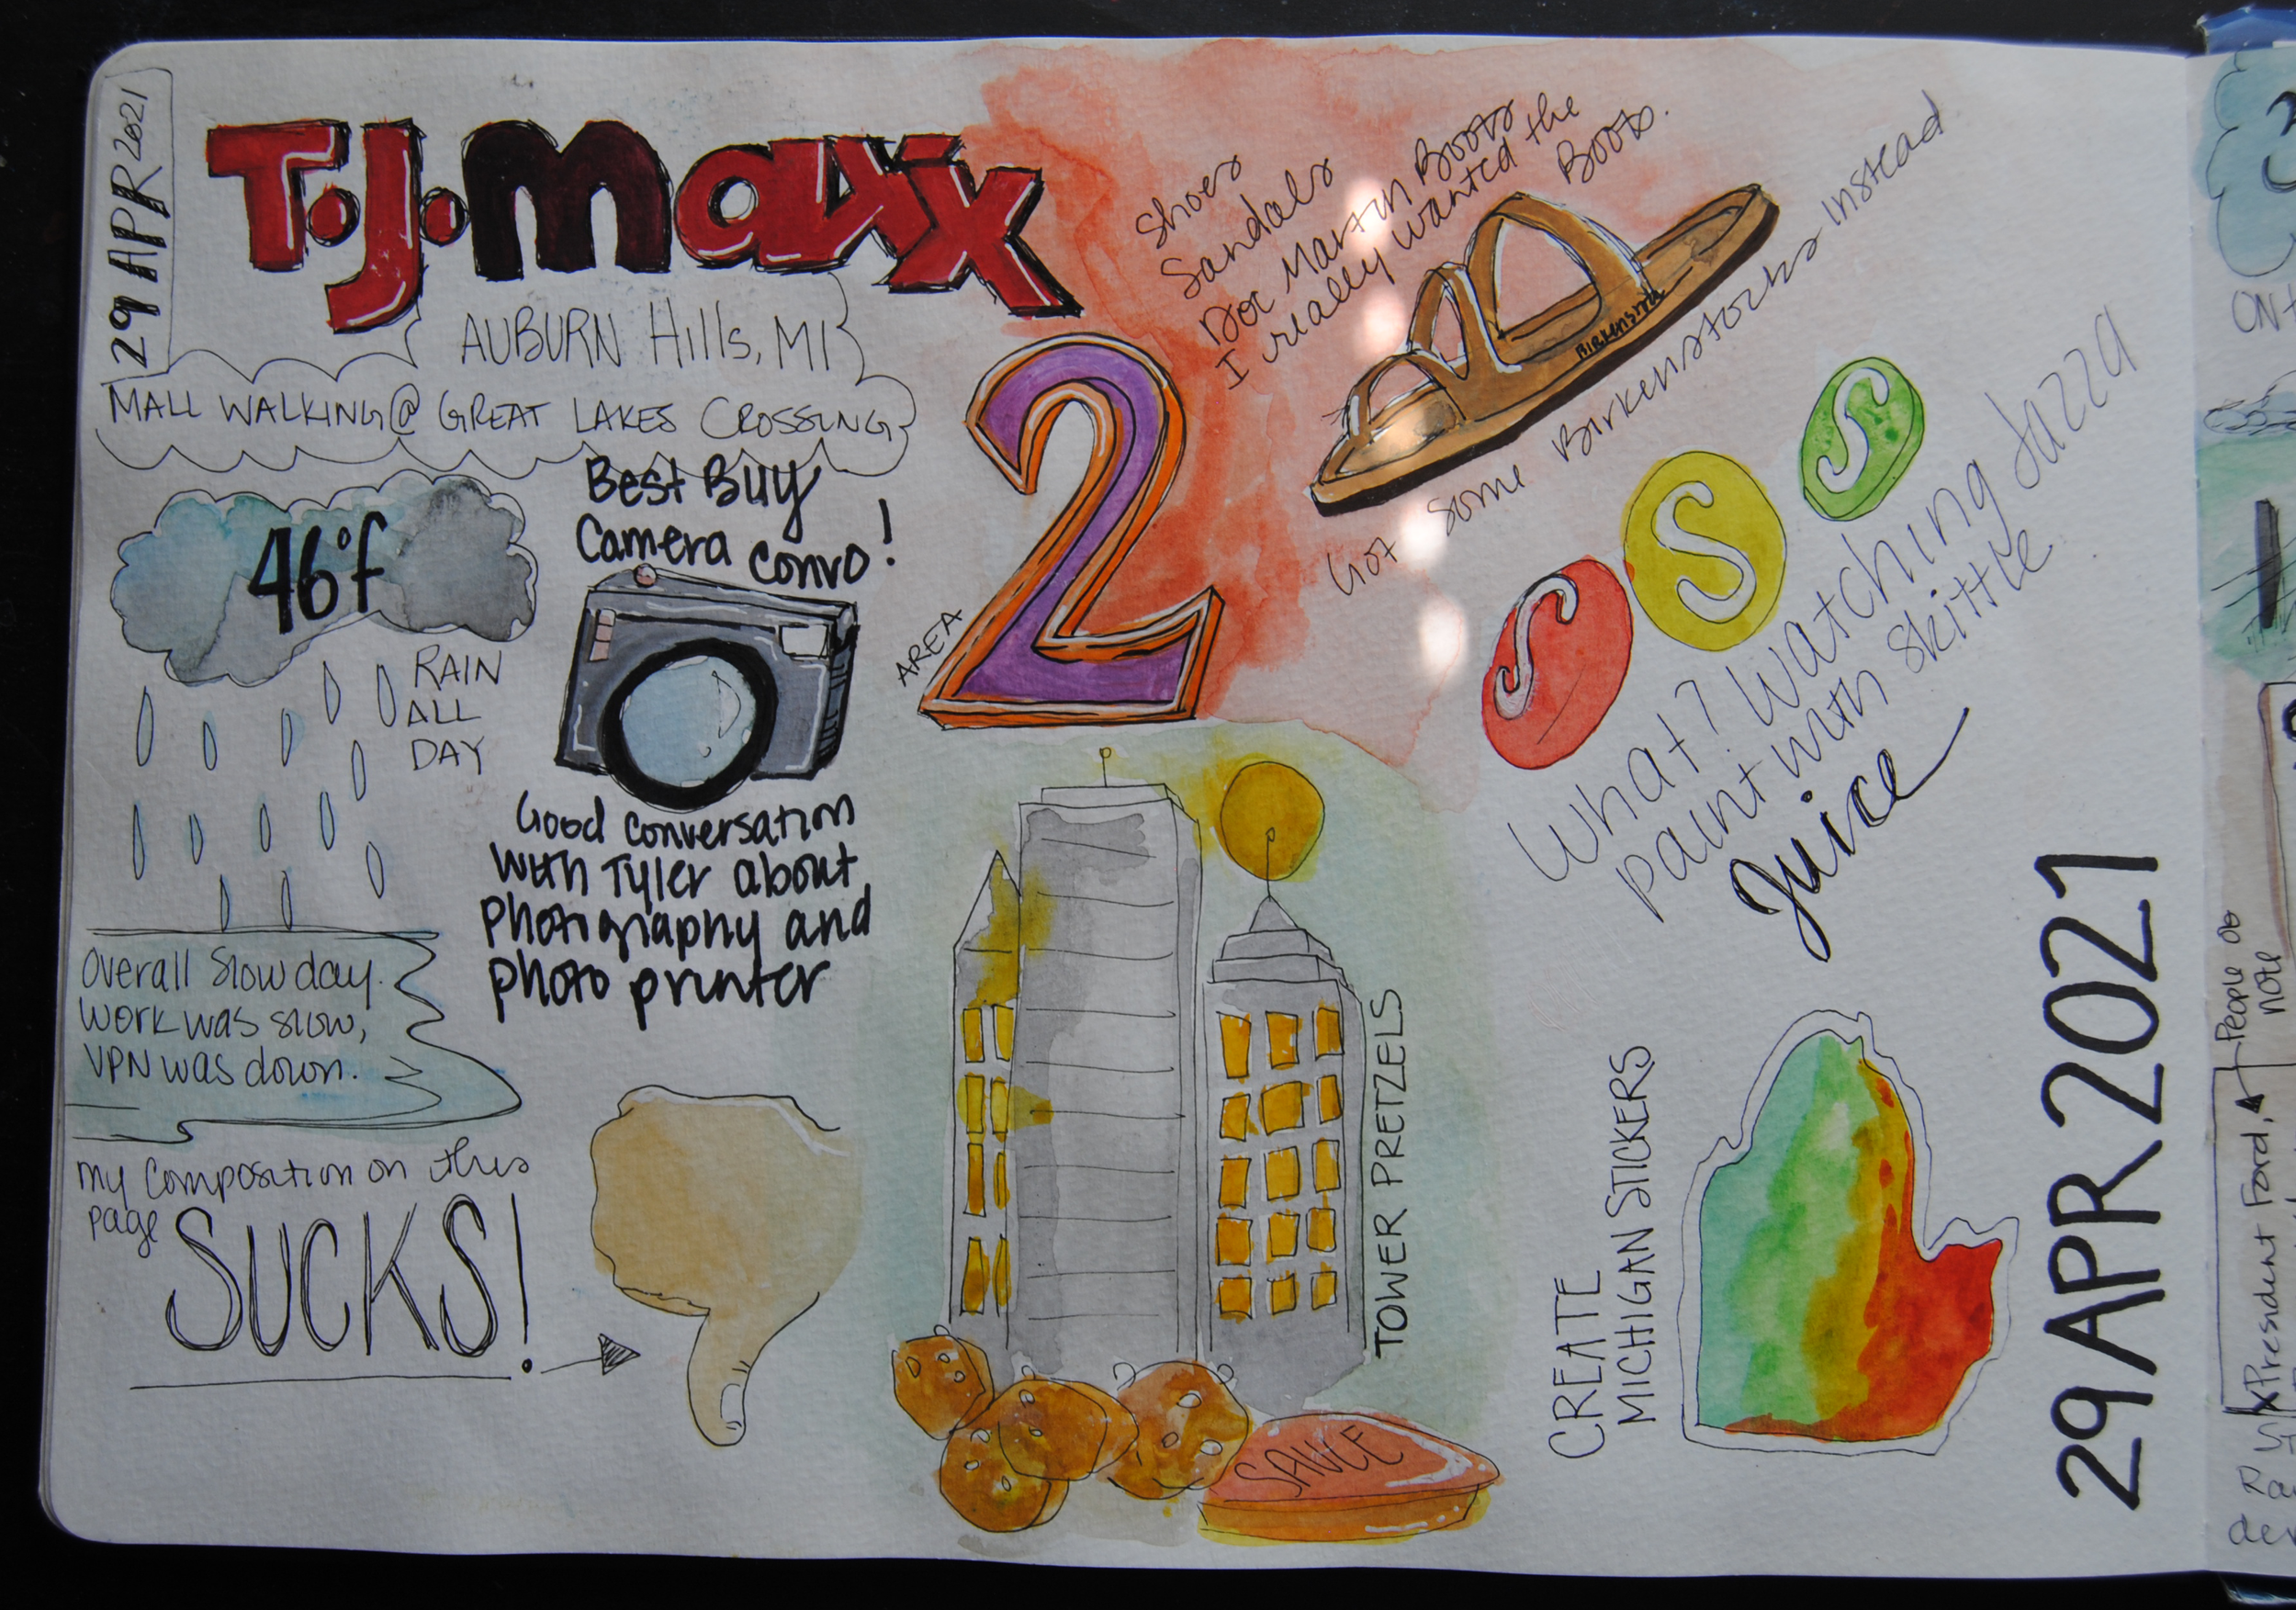 29 APR 2021
T.J.maxx
AUBURN Hills, MI
MALL WALKING @ GREAT LAKES CROSSING
46°f
RAIN
ALL
DAY
Best Buy
Camera Convo!
Good conversation
with Tyler about
photography and
photo printer
Overall slow day.
Work was slow,
VPN was down.
my composition on this
page
SUCKS!
AREA
2
Shoes
Sandals
Doc Martin Boots
I really wanted the
Boots.
BIRKENSTOCK
Got some Birkenstocks instead
S
S
S
What? Watching Jazza
paint with skittle
Juice
TOWER PRETZELS
SAUCE
CREATE
MICHIGAN STICKERS
29 APR 2021
ON
People do
note
President Ford,